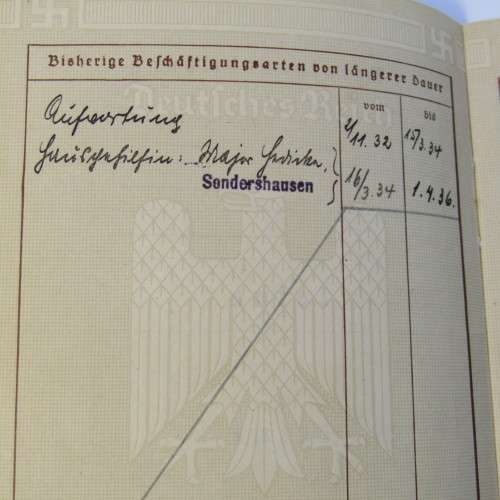 Bisherige Beschäftigungsarten von längerer Dauer
Deutsches Reich
vom
bis
Aufwartung
2/11. 32
15/3. 34
Hausgehilfin: Major Hedicke,
16/3. 34
1. 4. 36.
Sondershausen